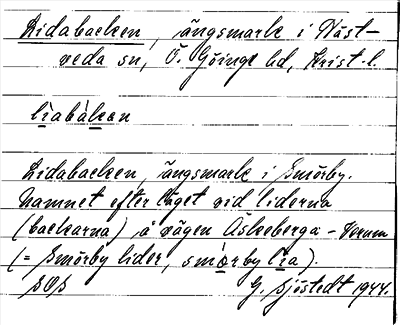 Lidabacken, ängsmark i Näst-
veda sn, Ö. Göinge hd, Krist. l.
lìabàkən
Lidabacken, ängsmark i Smörby.
Namnet efter läget vid liderna
(backarna) å vägen Äskeberga - Verum
(= Smörby lider, smörby lìa).
G. Sjöstedt 1944.